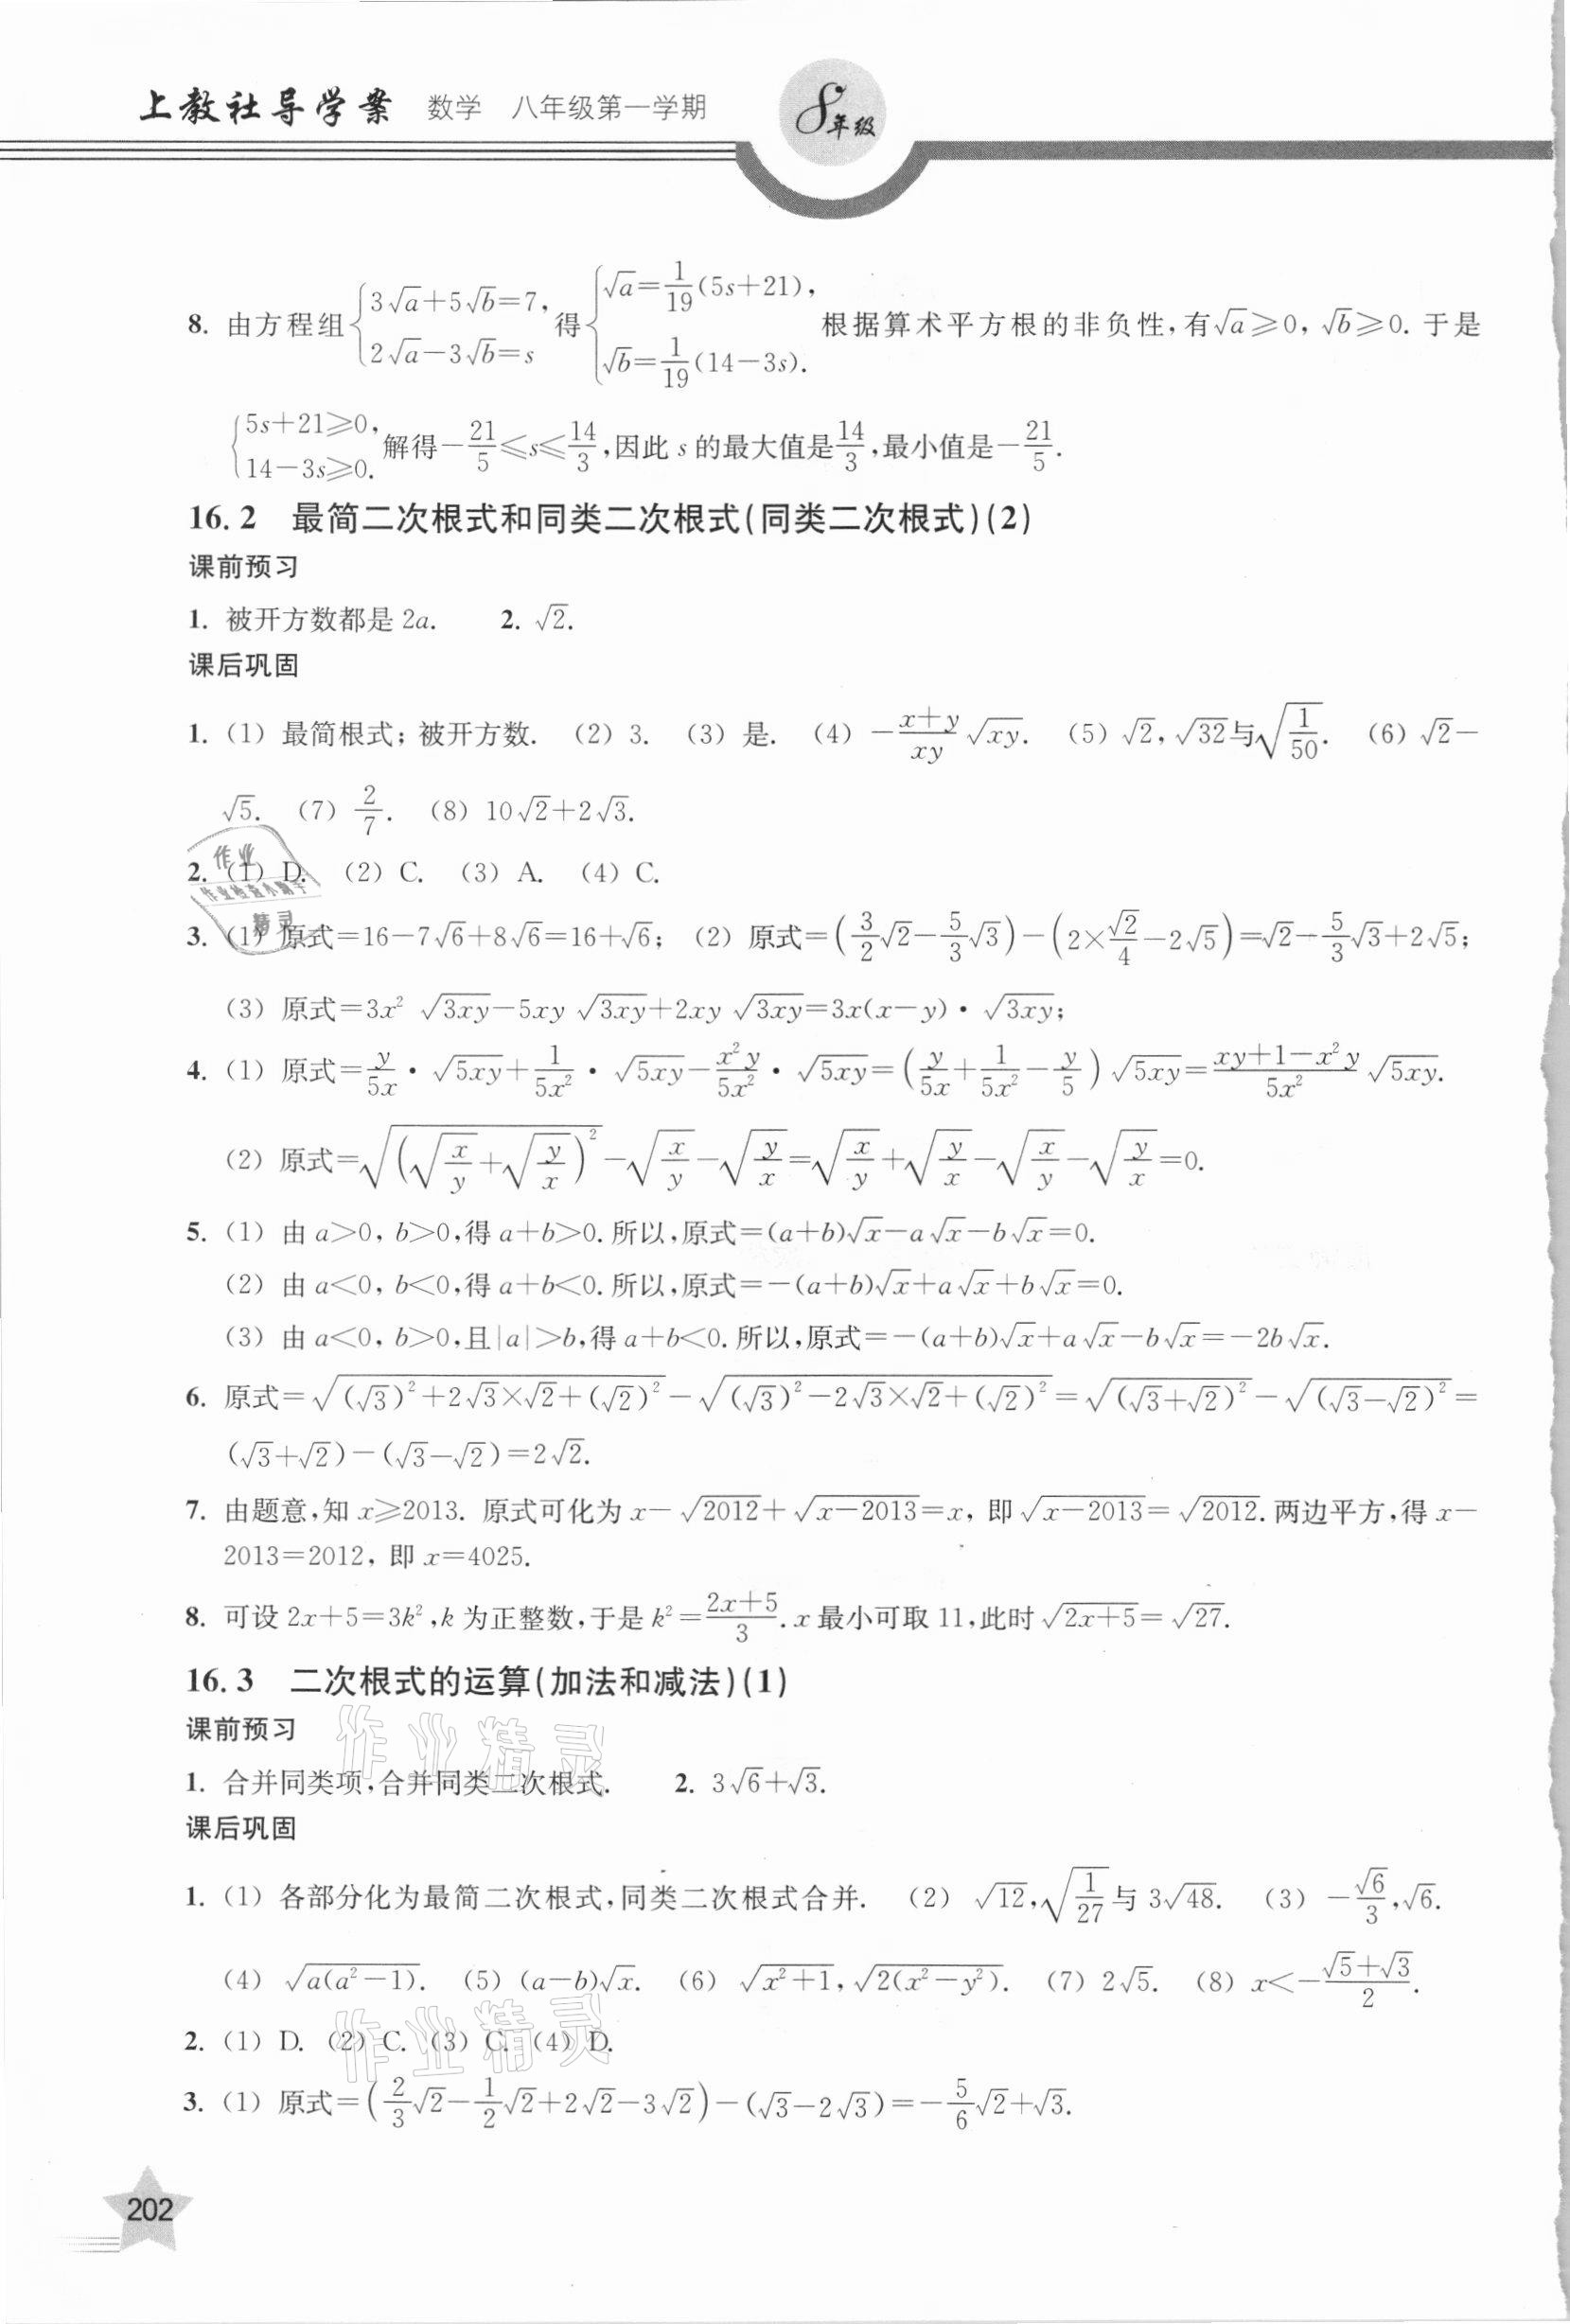 上教社导学案 数学 八年级第一学期 8年级
8. 由方程组{3√a+5√b=7, 2√a−3√b=s 得{√a=1/19(5s+21), √b=1/19(14−3s). 根据算术平方根的非负性,有√a≥0, √b≥0. 于是
{5s+21≥0, 14−3s≥0. 解得−21/5≤s≤14/3,因此 s 的最大值是14/3,最小值是−21/5.
16.2 最简二次根式和同类二次根式(同类二次根式)(2)
课前预习
1. 被开方数都是 2a. 2. √2.
课后巩固
1. (1) 最简根式; 被开方数. (2) 3. (3) 是. (4) −(x+y)/(xy) √(xy). (5) √2, √32与√(1/50). (6) √2−
√5. (7) 2/7. (8) 10√2+2√3.
2. (1) D. (2) C. (3) A. (4) C.
3. (1) 原式=16−7√6+8√6=16+√6; (2) 原式=(3/2√2−5/3√3)−(2×√2/4−2√5)=√2−5/3√3+2√5;
(3) 原式=3x² √(3xy)−5xy √(3xy)+2xy √(3xy)=3x(x−y)·√(3xy);
4. (1) 原式=y/(5x)·√(5xy)+1/(5x²)·√(5xy)−(x²y)/(5x²)·√(5xy)=(y/(5x)+1/(5x²)−y/5)√(5xy)=(xy+1−x²y)/(5x²) √(5xy).
(2) 原式=√((√(x/y)+√(y/x))²)−√(x/y)−√(y/x)=√(x/y)+√(y/x)−√(x/y)−√(y/x)=0.
5. (1) 由 a>0, b>0,得 a+b>0. 所以,原式=(a+b)√x−a√x−b√x=0.
(2) 由 a<0, b<0,得 a+b<0. 所以,原式=−(a+b)√x+a√x+b√x=0.
(3) 由 a<0, b>0,且|a|>b,得 a+b<0. 所以,原式=−(a+b)√x+a√x−b√x=−2b√x.
6. 原式=√((√3)²+2√3×√2+(√2)²)−√((√3)²−2√3×√2+(√2)²)=√((√3+√2)²)−√((√3−√2)²)=
(√3+√2)−(√3−√2)=2√2.
7. 由题意,知 x≥2013. 原式可化为 x−√2012+√(x−2013)=x, 即√(x−2013)=√2012. 两边平方,得 x−
2013=2012, 即 x=4025.
8. 可设 2x+5=3k²,k 为正整数,于是 k²=(2x+5)/3. x 最小可取 11,此时√(2x+5)=√27.
16.3 二次根式的运算(加法和减法)(1)
课前预习
1. 合并同类项,合并同类二次根式. 2. 3√6+√3.
课后巩固
1. (1) 各部分化为最简二次根式,同类二次根式合并. (2) √12,√(1/27)与 3√48. (3) −√6/3,√6.
(4) √(a(a²−1)). (5) (a−b)√x. (6) √(x²+1), √(2(x²−y²)). (7) 2√5. (8) x<−(√5+√3)/2.
2. (1) D. (2) C. (3) C. (4) D.
3. (1) 原式=(2/3√2−1/2√2+2√2−3√2)−(√3−2√3)=−5/6√2+√3.
202
作业
作业检查小助手
精灵
作业精灵
作业精灵